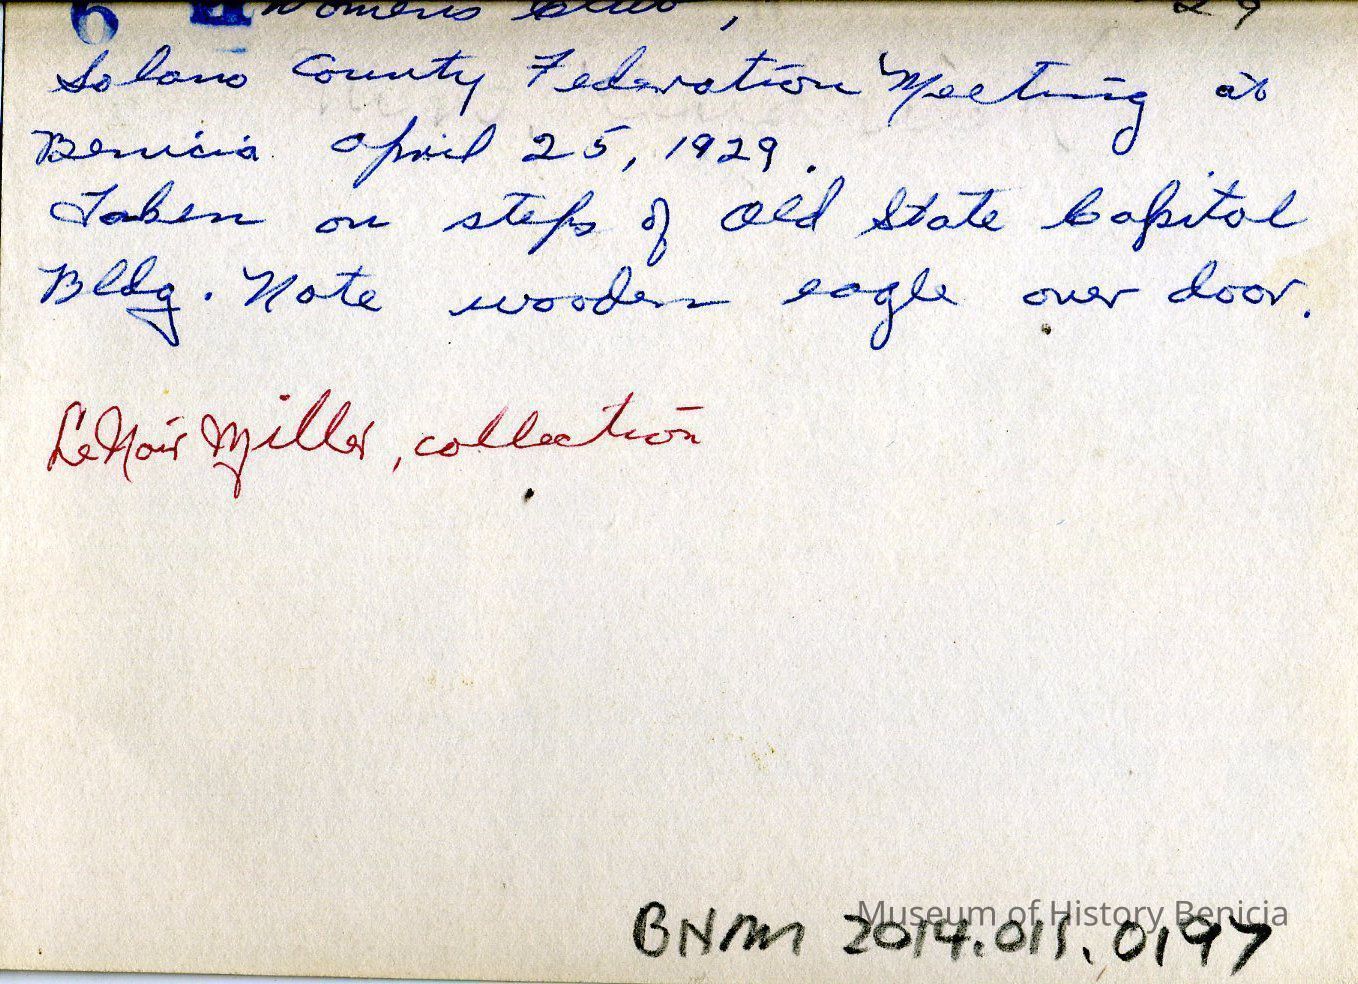 6 Womens Club, 29
Solano County Federation Meeting at
Benicia April 25, 1929.
Taken on steps of Old State Capitol
Bldg. Note wooden eagle over door.
LeNoir Miller, collection
Museum of History Benicia
BNM 2014.011.0197